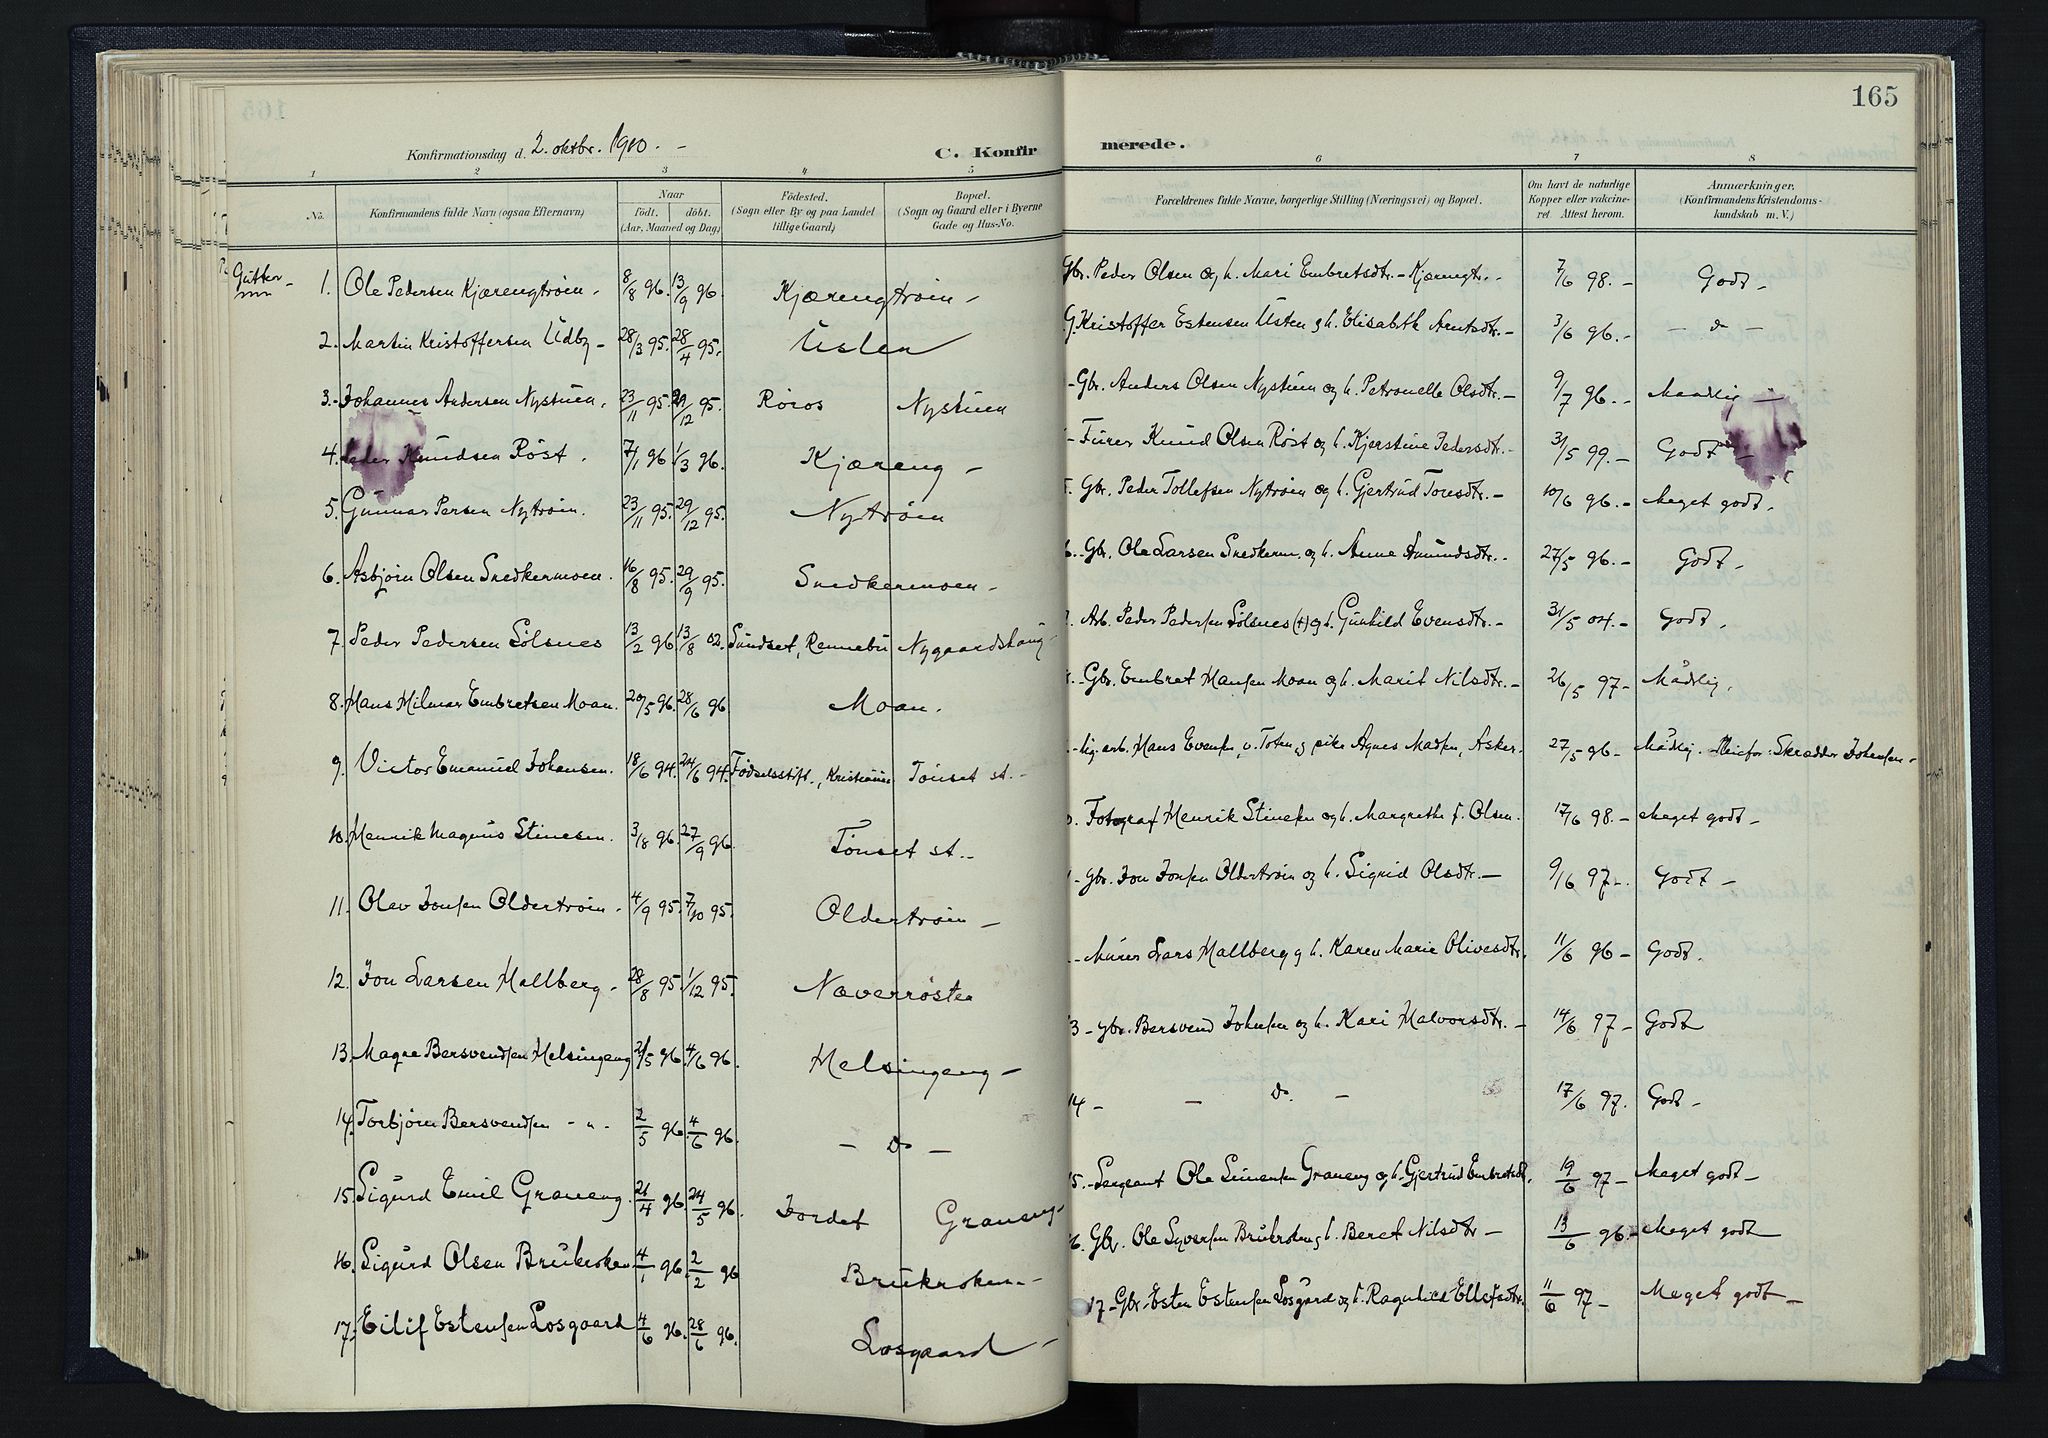 165
Konfirmationsdag d. 2. oktbr. 1910. -
C. Konfirmerede.
1 2 3 4 5 6 7 8
No.
Konfirmandens fulde Navn (ogsaa Efternavn)
Naar
födt. döbt.
(Aar, Maaned og Dag)
Födested.
(Sogn eller By og paa Landet
tillige Gaard)
Bopæl.
(Sogn og Gaard eller i Byerne
Gade og Hus-No.
Forældrenes fulde Navne, borgerlige Stilling (Næringsvei) og Bopæl.
Om havt de naturlige
Kopper eller vakcine-
ret. Attest herom.
Anmærkninger.
(Konfirmandens Kristendoms-
kundskab m. V.)
Gutter
1. Ole Pedersen Kjærengtrøen. 8/8 96. 13/9 96 Kjærengtrøen - Gbr. Peder Olsen og h. Mari Embretsdtr. - Kjærengtr. - 7/6 98. - Godt -
2. Martin Kristoffersen Udby - 28/3 95. 28/4 95. Usten G. Kristoffer Estensen Usten og h. Elisabeth Arntsdtr. - 3/6 96. - - do -
3. Johannes Andersen Nystuen. 23/11 95. 29/12 95. Røros Nystuen - Gbr. Anders Olsen Nystuen og h. Petronelle Olsdtr. - 9/7 96. - Maadelig -
4. Peder Knudsen Röst. 7/1 96 1/3 96. Kjæreng - - Furer Knud Olsen Röst og h. Kjerstine Pedersdtr. - 31/5 99. - Godt -
5. Gunnar Persen Nytrøen. 23/11 95. 29/12 95. Nytrøen Gbr. Peder Tollefsen Nytrøen og h. Gjertrud Toresdtr. - 10/6 96. - Meget godt.
6. Asbjørn Olsen Snedkermoen. 16/8 95. 29/9 95. Snedkermoen - - Gbr. Ole Larsen Snedkerm. og h. Anne Amundsdtr. - 27/5 96. - Godt -
7. Peder Pedersen Sölsnes 13/2 96 13/8 02. Sundset, Rennebu Nygaardshaug - Arb. Peder Pedersen Sölsnes (+) og h. Gunhild Evensdtr. - 31/5 04. - Godt.
8. Hans Hilmar Embretsen Moan. 20/5 96. 28/6 96 Moan. - Gbr. Embret Hansen Moan og h. Marit Nilsdtr. - 26/5 97 - Mådelig.
9. Victor Emanuel Johansen. 18/6 94. 24/6 94. Fødselsstift., Kristiania Tönset st. - - Hans Evensen, v. Toten og pike Agnes Madsen, Asker. 27/5 96 - Mådelig. Skrædder Johansen -
10. Henrik Magnus Stinesen. 3/8 96. 27/9 96. Tönset st. - Fotograf Henrik Stinesen og h. Margrethe f. Olsen. 17/6 98. - Meget godt -
11. Olav Jonsen Oldertrøen. 4/9 95. 7/10 95. Oldertrøen - - Gbr. Jon Jonsen Oldertrøen og h. Sigrid Olsdtr. - 9/6 97. - Godt -
12. Jon Larsen Hallberg - 28/8 95. 1/12 95. Næverrösten - Murer Lars Hallberg og h. Karen Marie Olivesdtr. 11/6 96 - Godt.
13. Magne Bersvendsen Helsingeng 21/5 96. 4/6 96. Helsingeng - 13 - Gbr. Bersvend Johnsen og h. Kari Halvorsdtr. - 14/6 97 - Godt
14. Torbjørn Bersvendsen - " - 2/5 96 4/6 96. - do - 14 - - do. - 17/6 97. Godt -
15. Sigurd Emil Graneng. 21/4 96 24/5 96. Jordet Graneng - 15. - Sergeant Ole Simensen Graneng og h. Gjertrud Embretsdtr. 19/6 97 - Meget godt -
16. Sigurd Olsen Brukroken 4/1 96. 2/2 96 Brukroken - 16. Gbr. Ole Syversen Brukroken og h. Beret Nilsdtr - 13/6 96. - Meget godt
17. Eilif Estensen Losgaard 4/6 96. 28/6 96. Losgaard - 17 - Gbr. Esten Estensen Losgård og h. Ragnhild Ellefsdtr. 11/6 97 - Meget godt -